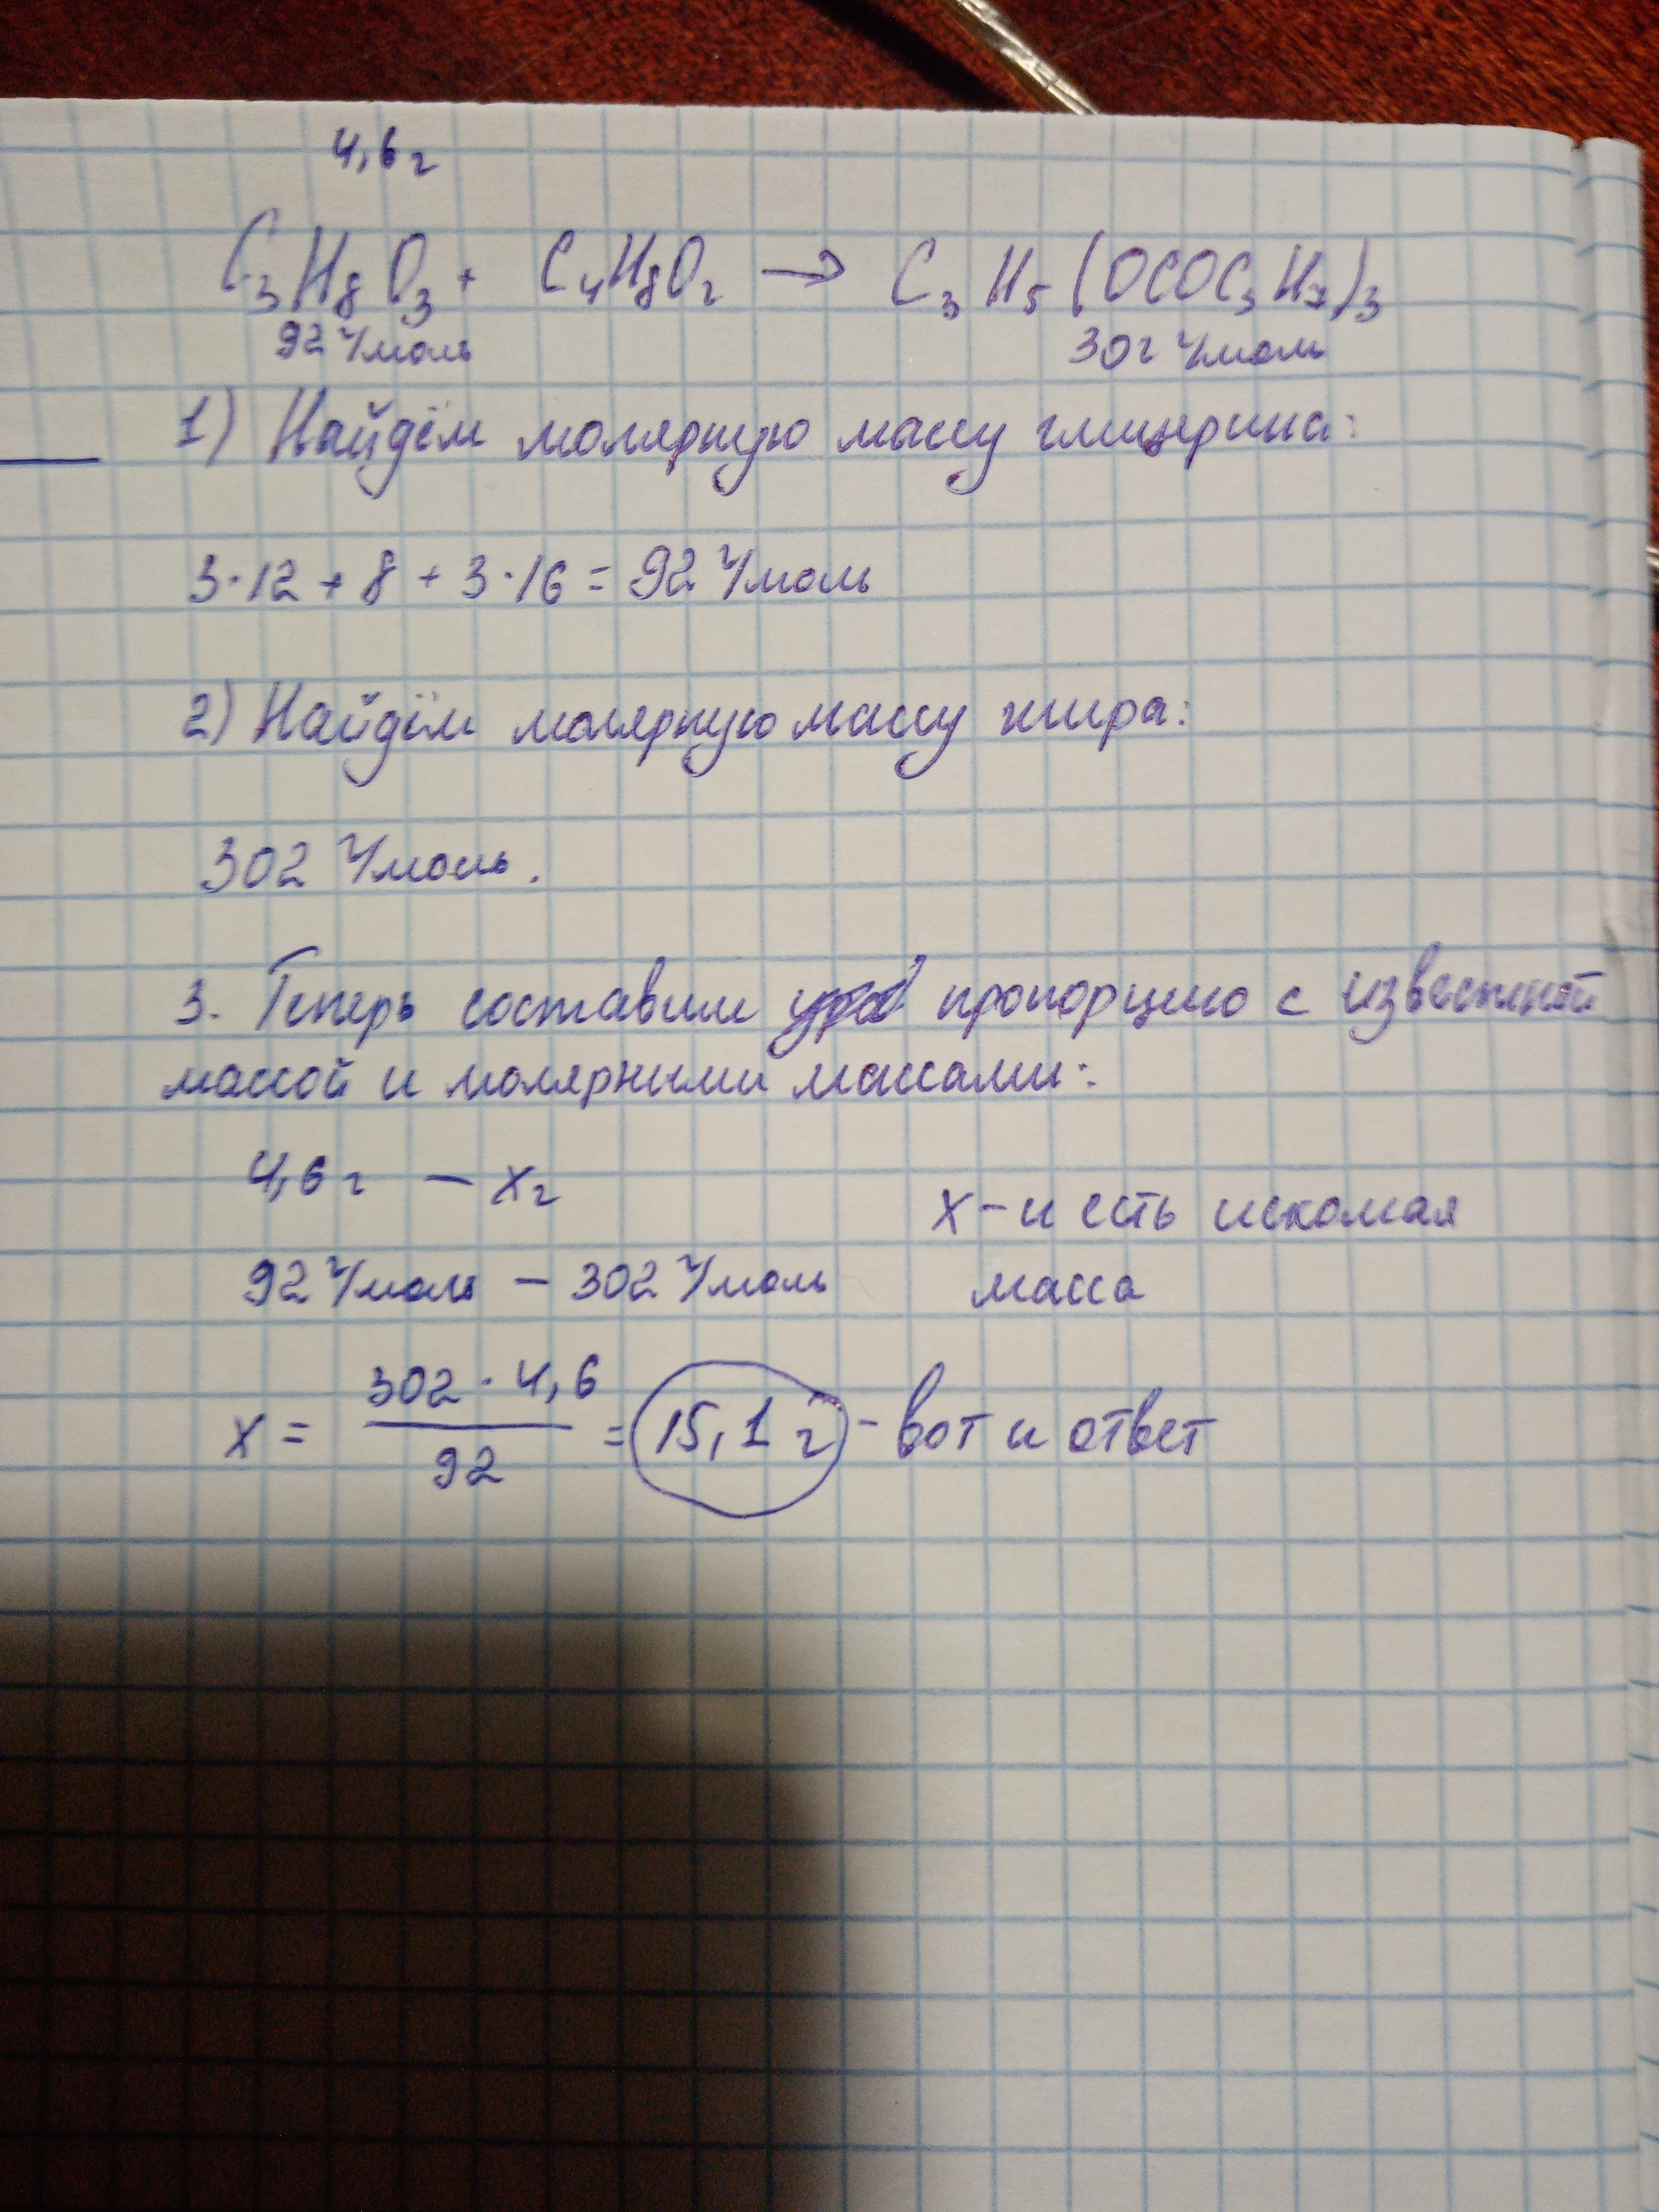 4,6 г
C₃H₈O₃ + C₄H₈O₂ → C₃H₅(OCOC₃H₇)₃
92 г/моль 302 г/моль
1) Найдём молярную массу глицерина:
3·12 + 8 + 3·16 = 92 г/моль
2) Найдём молярную массу жира:
302 г/моль.
3. Теперь составим пропорцию с известной
массой и молярными массами:
4,6 г — x г
92 г/моль — 302 г/моль
x - и есть искомая
масса
x = 302 · 4,6 / 92 = 15,1 г - вот и ответ